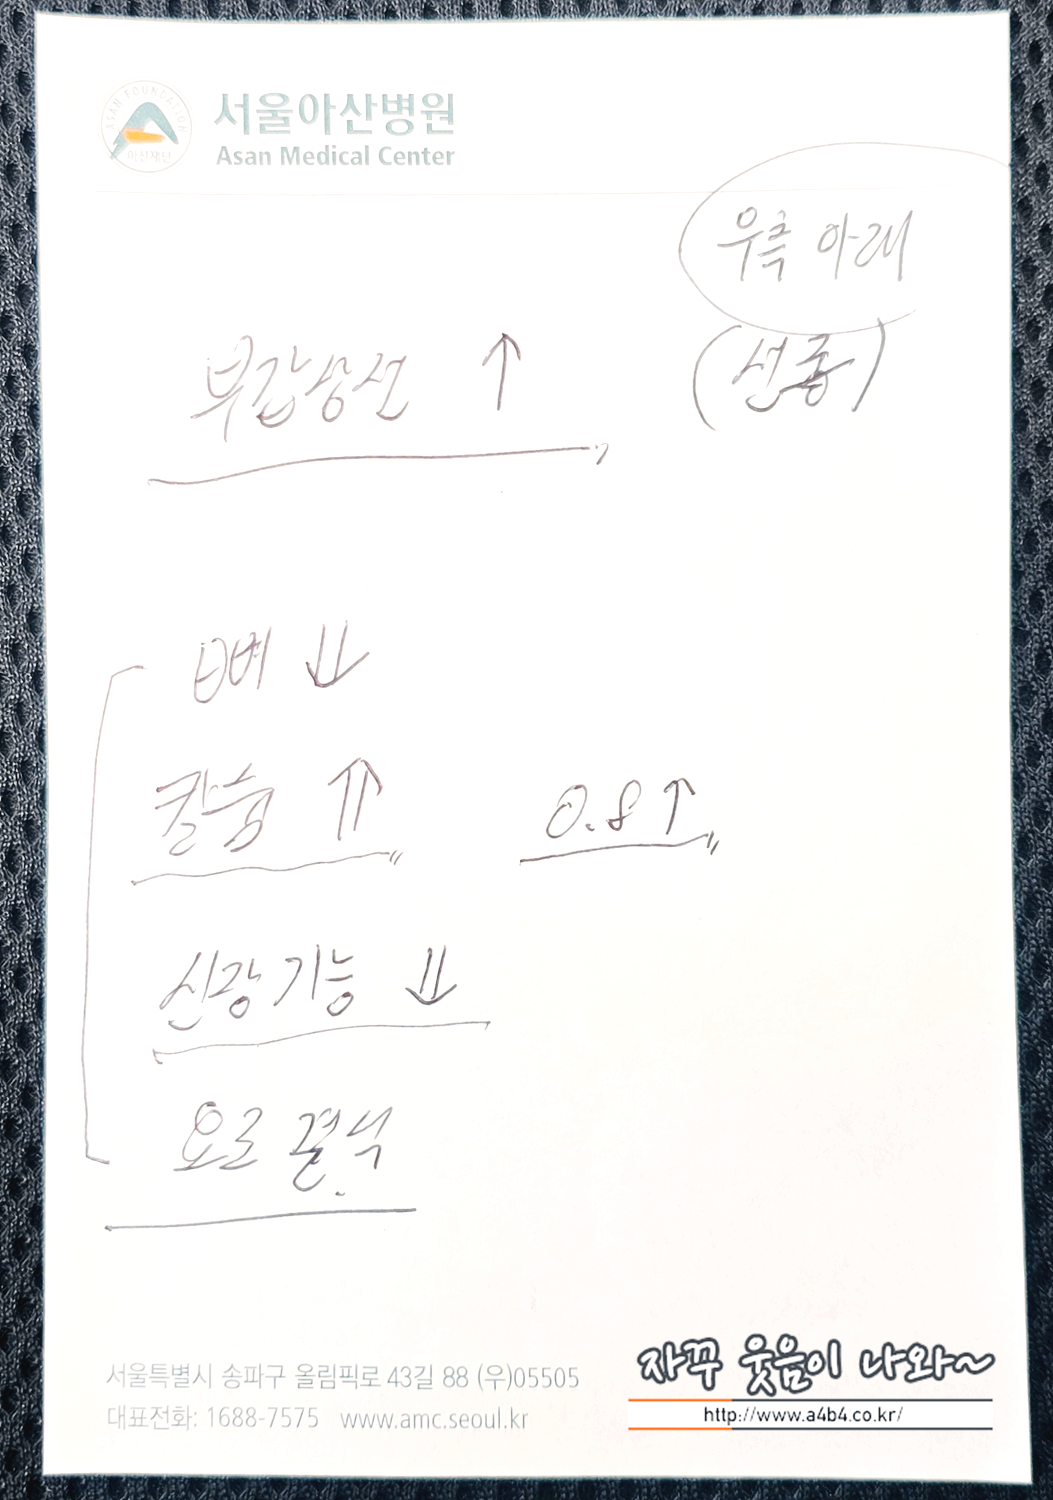 ASAN FOUNDATION
아산재단
서울아산병원
Asan Medical Center
우측 아래
부갑상선 ↑
(선종)
뼈 ↓↓
칼슘 ↑↑ 0.8↑
신장기능 ↓↓
요로 결석
서울특별시 송파구 올림픽로 43길 88 (우)05505
대표전화: 1688-7575 www.amc.seoul.kr
자꾸 웃음이 나와~
http://www.a4b4.co.kr/